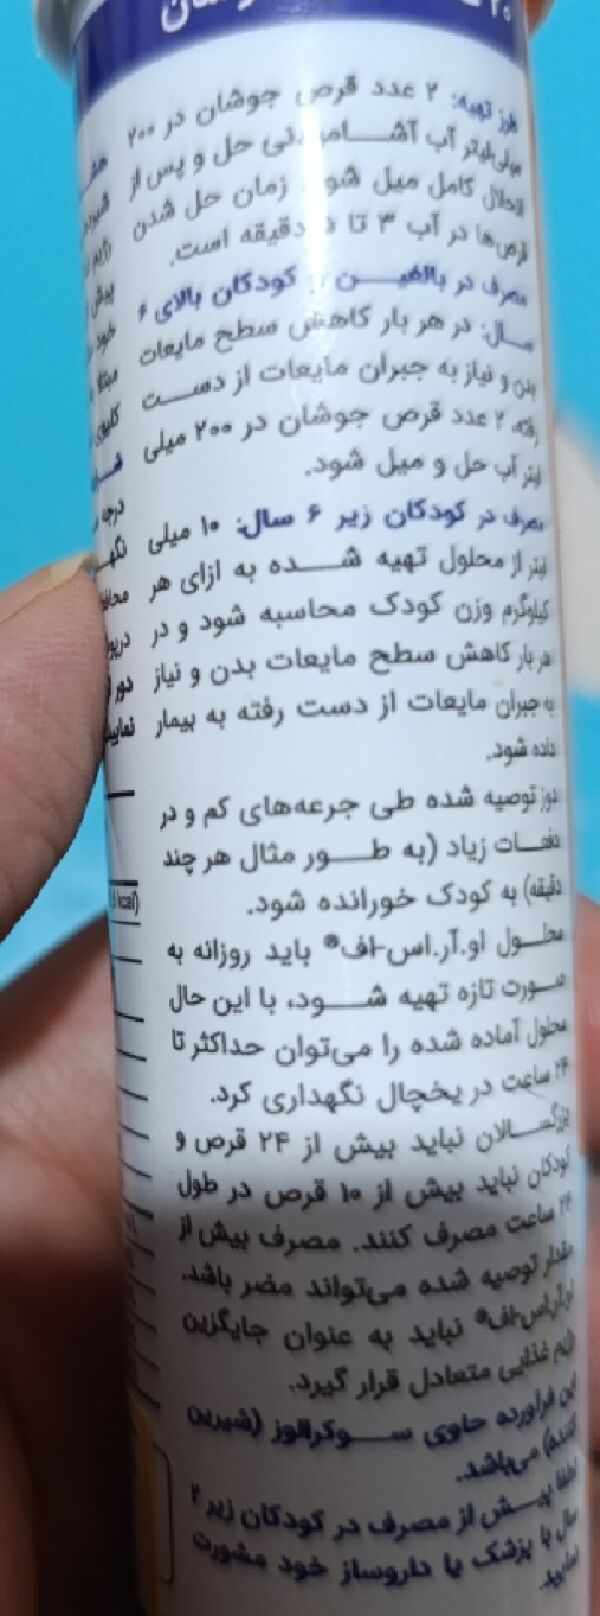 طرز تهیه: ۲ عدد قرص جوشان در ۲۰۰
میلی‌لیتر آب آشامیدنی حل و پس از
انحلال کامل میل شود. زمان حل شدن
قرص‌ها در آب ۳ تا دقیقه است.
مصرف در بالغین و کودکان بالای ۶
سال: در هر بار کاهش سطح مایعات
بدن و نیاز به جبران مایعات از دست
رفته، ۲ عدد قرص جوشان در ۲۰۰ میلی
لیتر آب حل و میل شود.
مصرف در کودکان زیر ۶ سال: ۱۰ میلی
لیتر از محلول تهیه شده به ازای هر
کیلوگرم وزن کودک محاسبه شود و در
هر بار کاهش سطح مایعات بدن و نیاز
به جبران مایعات از دست رفته به بیمار
داده شود.
دوز توصیه شده طی جرعه‌های کم و در
دفعات زیاد (به طور مثال هر چند
دقیقه) به کودک خورانده شود.
محلول او.آر.اس-اف® باید روزانه به
صورت تازه تهیه شود، با این حال
محلول آماده شده را می‌توان حداکثر تا
۲۴ ساعت در یخچال نگهداری کرد.
بزرگسالان نباید بیش از ۲۴ قرص و
کودکان نباید بیش از ۱۰ قرص در طول
۲۴ ساعت مصرف کنند. مصرف بیش از
مقدار توصیه شده می‌تواند مضر باشد.
او.آر.اس-اف® نباید به عنوان جایگزین
رژیم غذایی متعادل قرار گیرد.
این فرآورده حاوی سوکرالوز (شیرین
کننده) می‌باشد.
لطفا پیش از مصرف در کودکان زیر ۲
سال با پزشک یا داروساز خود مشورت
نمایید.
kcal)